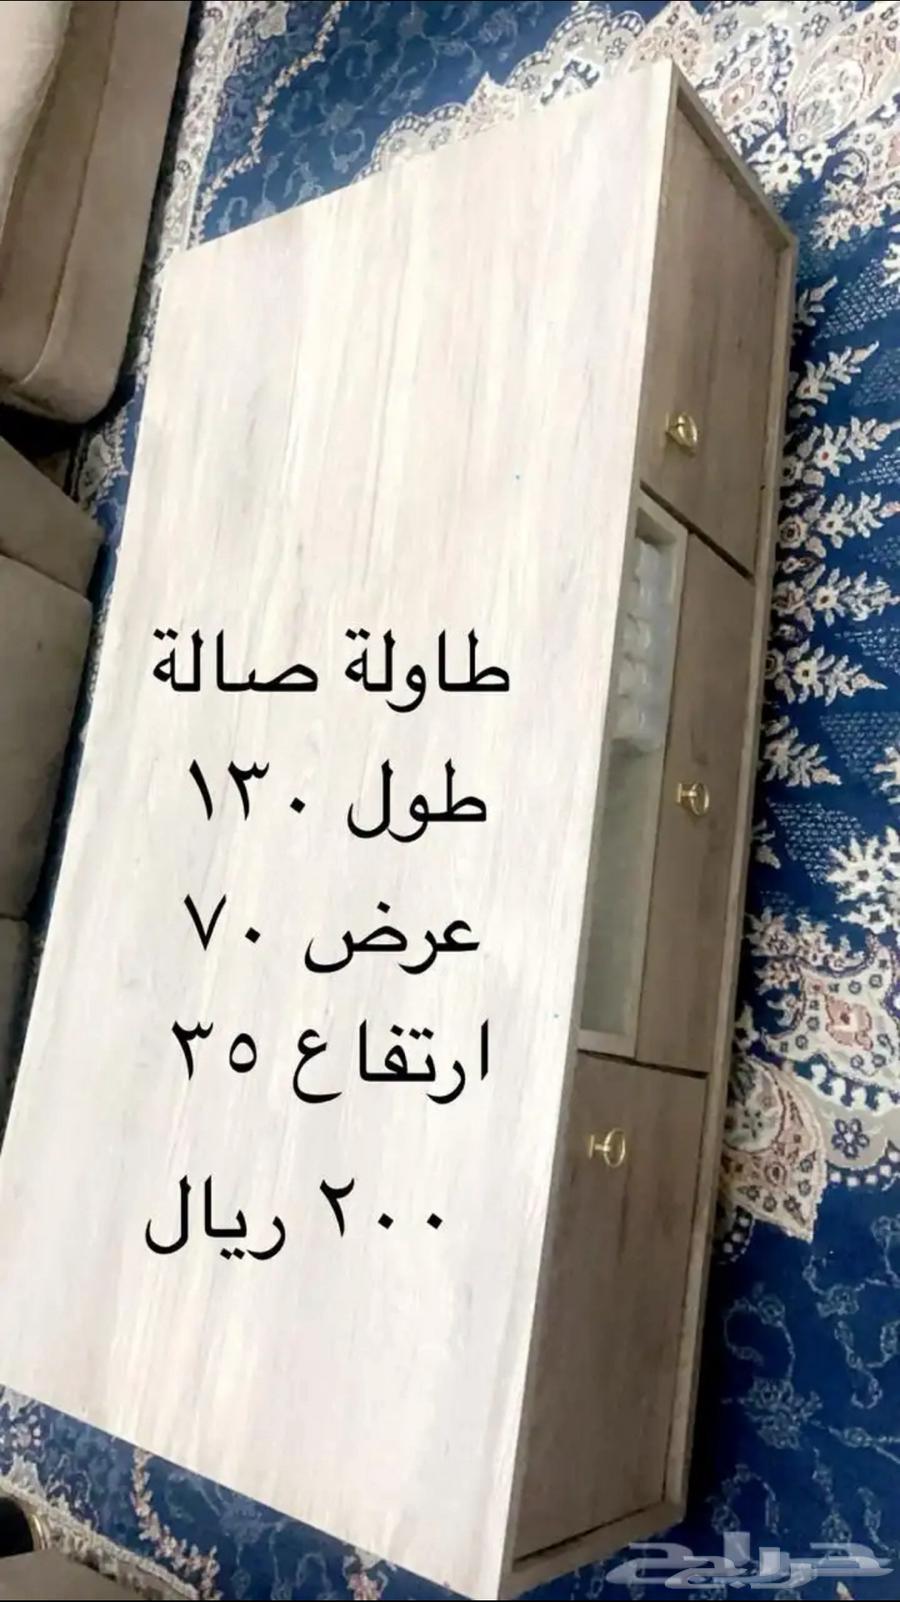 طاولة صالة
طول ١٣٠
عرض ٧٠
ارتفاع ٣٥
٢٠٠ ريال
حراج